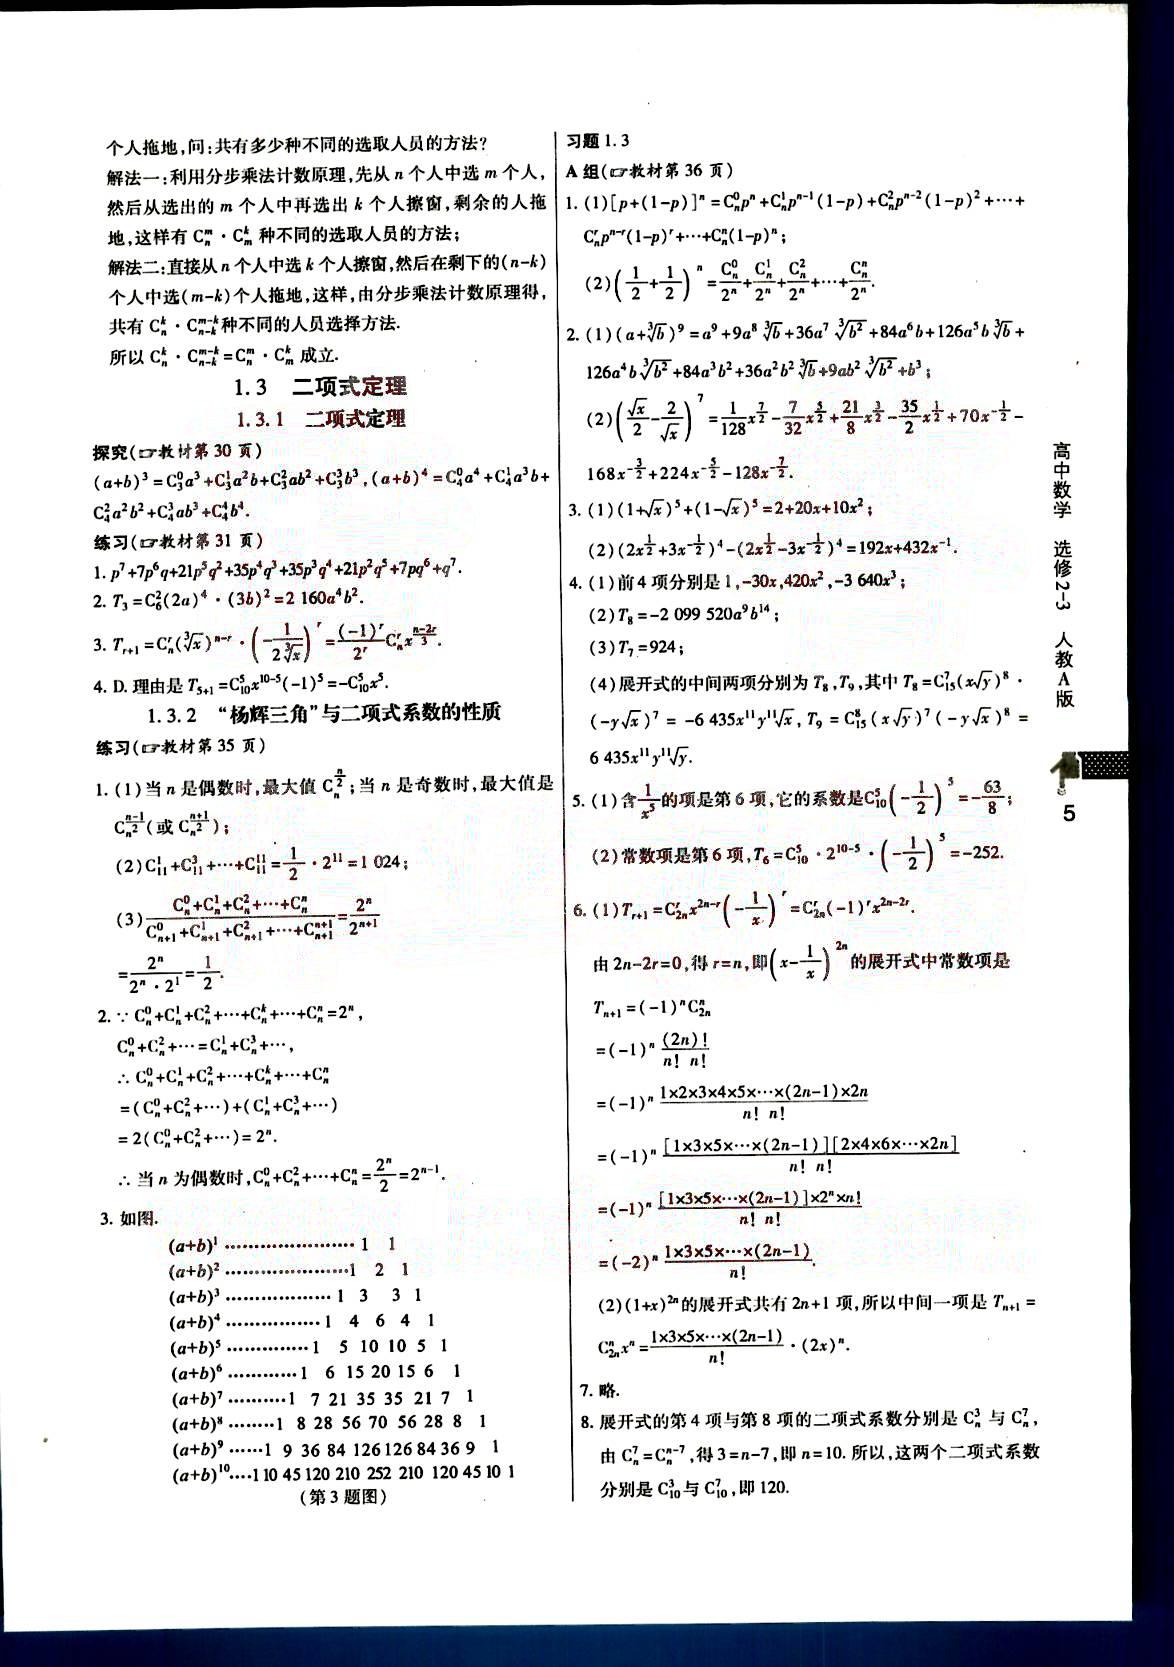 个人拖地,问:共有多少种不同的选取人员的方法?
解法一:利用分步乘法计数原理,先从 n 个人中选 m 个人,
然后从选出的 m 个人中再选出 k 个人擦窗,剩余的人拖
地,这样有 C_n^m · C_m^k 种不同的选取人员的方法;
解法二:直接从 n 个人中选 k 个人擦窗,然后在剩下的(n-k)
个人中选(m-k)个人拖地,这样,由分步乘法计数原理得,
共有 C_n^k · C_{n-k}^{m-k}种不同的人员选择方法.
所以 C_n^k · C_{n-k}^{m-k}=C_n^m · C_m^k 成立.
1.3 二项式定理
1.3.1 二项式定理
探究(☞教材第 30 页)
(a+b)^3=C_3^0a^3+C_3^1a^2b+C_3^2ab^2+C_3^3b^3,(a+b)^4=C_4^0a^4+C_4^1a^3b+
C_4^2a^2b^2+C_4^3ab^3+C_4^4b^4.
练习(☞教材第 31 页)
1. p^7+7p^6q+21p^5q^2+35p^4q^3+35p^3q^4+21p^2q^5+7pq^6+q^7.
2. T_3=C_6^2(2a)^4 · (3b)^2=2 160a^4b^2.
3. T_{r+1}=C_n^r(∛x)^{n-r} · (-1/(2∛x))^r=((-1)^r/2^r)C_n^r x^{(n-2r)/3}.
4. D. 理由是 T_{5+1}=C_{10}^5x^{10-5}(-1)^5=-C_{10}^5x^5.
1.3.2 “杨辉三角”与二项式系数的性质
练习(☞教材第 35 页)
1. (1)当 n 是偶数时,最大值 C_n^{n/2};当 n 是奇数时,最大值是
C_n^{(n-1)/2}(或 C_n^{(n+1)/2});
(2)C_{11}^1+C_{11}^3+…+C_{11}^{11}=1/2 · 2^{11}=1 024;
(3)(C_n^0+C_n^1+C_n^2+…+C_n^n)/(C_{n+1}^0+C_{n+1}^1+C_{n+1}^2+…+C_{n+1}^{n+1})=2^n/2^{n+1}
=2^n/(2^n · 2^1)=1/2.
2. ∵ C_n^0+C_n^1+C_n^2+…+C_n^k+…+C_n^n=2^n,
C_n^0+C_n^2+…=C_n^1+C_n^3+…,
∴ C_n^0+C_n^1+C_n^2+…+C_n^k+…+C_n^n
=(C_n^0+C_n^2+…)+(C_n^1+C_n^3+…)
=2(C_n^0+C_n^2+…)=2^n.
∴ 当 n 为偶数时,C_n^0+C_n^2+…+C_n^n=2^n/2=2^{n-1}.
3. 如图.
(a+b)^1 ……………………1 1
(a+b)^2 …………………1 2 1
(a+b)^3 ………………1 3 3 1
(a+b)^4 ………………1 4 6 4 1
(a+b)^5 ……………1 5 10 10 5 1
(a+b)^6 …………1 6 15 20 15 6 1
(a+b)^7 ……….1 7 21 35 35 21 7 1
(a+b)^8 ……..1 8 28 56 70 56 28 8 1
(a+b)^9 ……1 9 36 84 126 126 84 36 9 1
(a+b)^10….1 10 45 120 210 252 210 120 45 10 1
(第 3 题图)
习题 1.3
A 组(☞教材第 36 页)
1. (1)[p+(1-p)]^n=C_n^0p^n+C_n^1p^{n-1}(1-p)+C_n^2p^{n-2}(1-p)^2+…+
C_n^rp^{n-r}(1-p)^r+…+C_n^n(1-p)^n;
(2)(1/2+1/2)^n=C_n^0/2^n+C_n^1/2^n+C_n^2/2^n+…+C_n^n/2^n.
2. (1)(a+∛b)^9=a^9+9a^8∛b+36a^7∛(b^2)+84a^6b+126a^5b∛b+
126a^4b∛(b^2)+84a^3b^2+36a^2b^2∛b+9ab^2∛(b^2)+b^3;
(2)(√x/2-2/√x)^7=(1/128)x^{7/2}-(7/32)x^{5/2}+(21/8)x^{3/2}-(35/2)x^{1/2}+70x^{-1/2}-
168x^{-3/2}+224x^{-5/2}-128x^{-7/2}.
3. (1)(1+√x)^5+(1-√x)^5=2+20x+10x^2;
(2)(2x^{1/2}+3x^{-1/2})^4-(2x^{1/2}-3x^{-1/2})^4=192x+432x^{-1}.
4. (1)前 4 项分别是 1,-30x,420x^2,-3 640x^3;
(2)T_8=-2 099 520a^9b^{14};
(3)T_7=924;
(4)展开式的中间两项分别为 T_8,T_9,其中 T_8=C_{15}^7(x√y)^8 ·
(-y√x)^7 = -6 435x^{11}y^{11}√x, T_9 = C_{15}^8(x√y)^7(-y√x)^8 =
6 435x^{11}y^{11}√y.
5. (1)含1/x^5的项是第 6 项,它的系数是C_{10}^5(-1/2)^5=-63/8;
(2)常数项是第 6 项,T_6=C_{10}^5 · 2^{10-5} · (-1/2)^5=-252.
6. (1)T_{r+1}=C_{2n}^rx^{2n-r}(-1/x)^r=C_{2n}^r(-1)^rx^{2n-2r}.
由 2n-2r=0,得 r=n,即(x-1/x)^{2n}的展开式中常数项是
T_{n+1}=(-1)^nC_{2n}^n
=(-1)^n (2n)!/(n! n!)
=(-1)^n (1×2×3×4×5×…×(2n-1)×2n)/(n! n!)
=(-1)^n ([1×3×5×…×(2n-1)][2×4×6×…×2n])/(n! n!)
=(-1)^n ([1×3×5×…×(2n-1)]×2^n×n!)/(n! n!)
=(-2)^n (1×3×5×…×(2n-1))/n!.
(2)(1+x)^{2n}的展开式共有 2n+1 项,所以中间一项是 T_{n+1}=
C_{2n}^nx^n=(1×3×5×…×(2n-1))/n! · (2x)^n.
7. 略.
8. 展开式的第 4 项与第 8 项的二项式系数分别是 C_n^3 与 C_n^7,
由 C_n^7=C_n^{n-7},得 3=n-7,即 n=10. 所以,这两个二项式系数
分别是 C_{10}^3与 C_{10}^7,即 120.
高中数学 选修2-3 人教A版
5